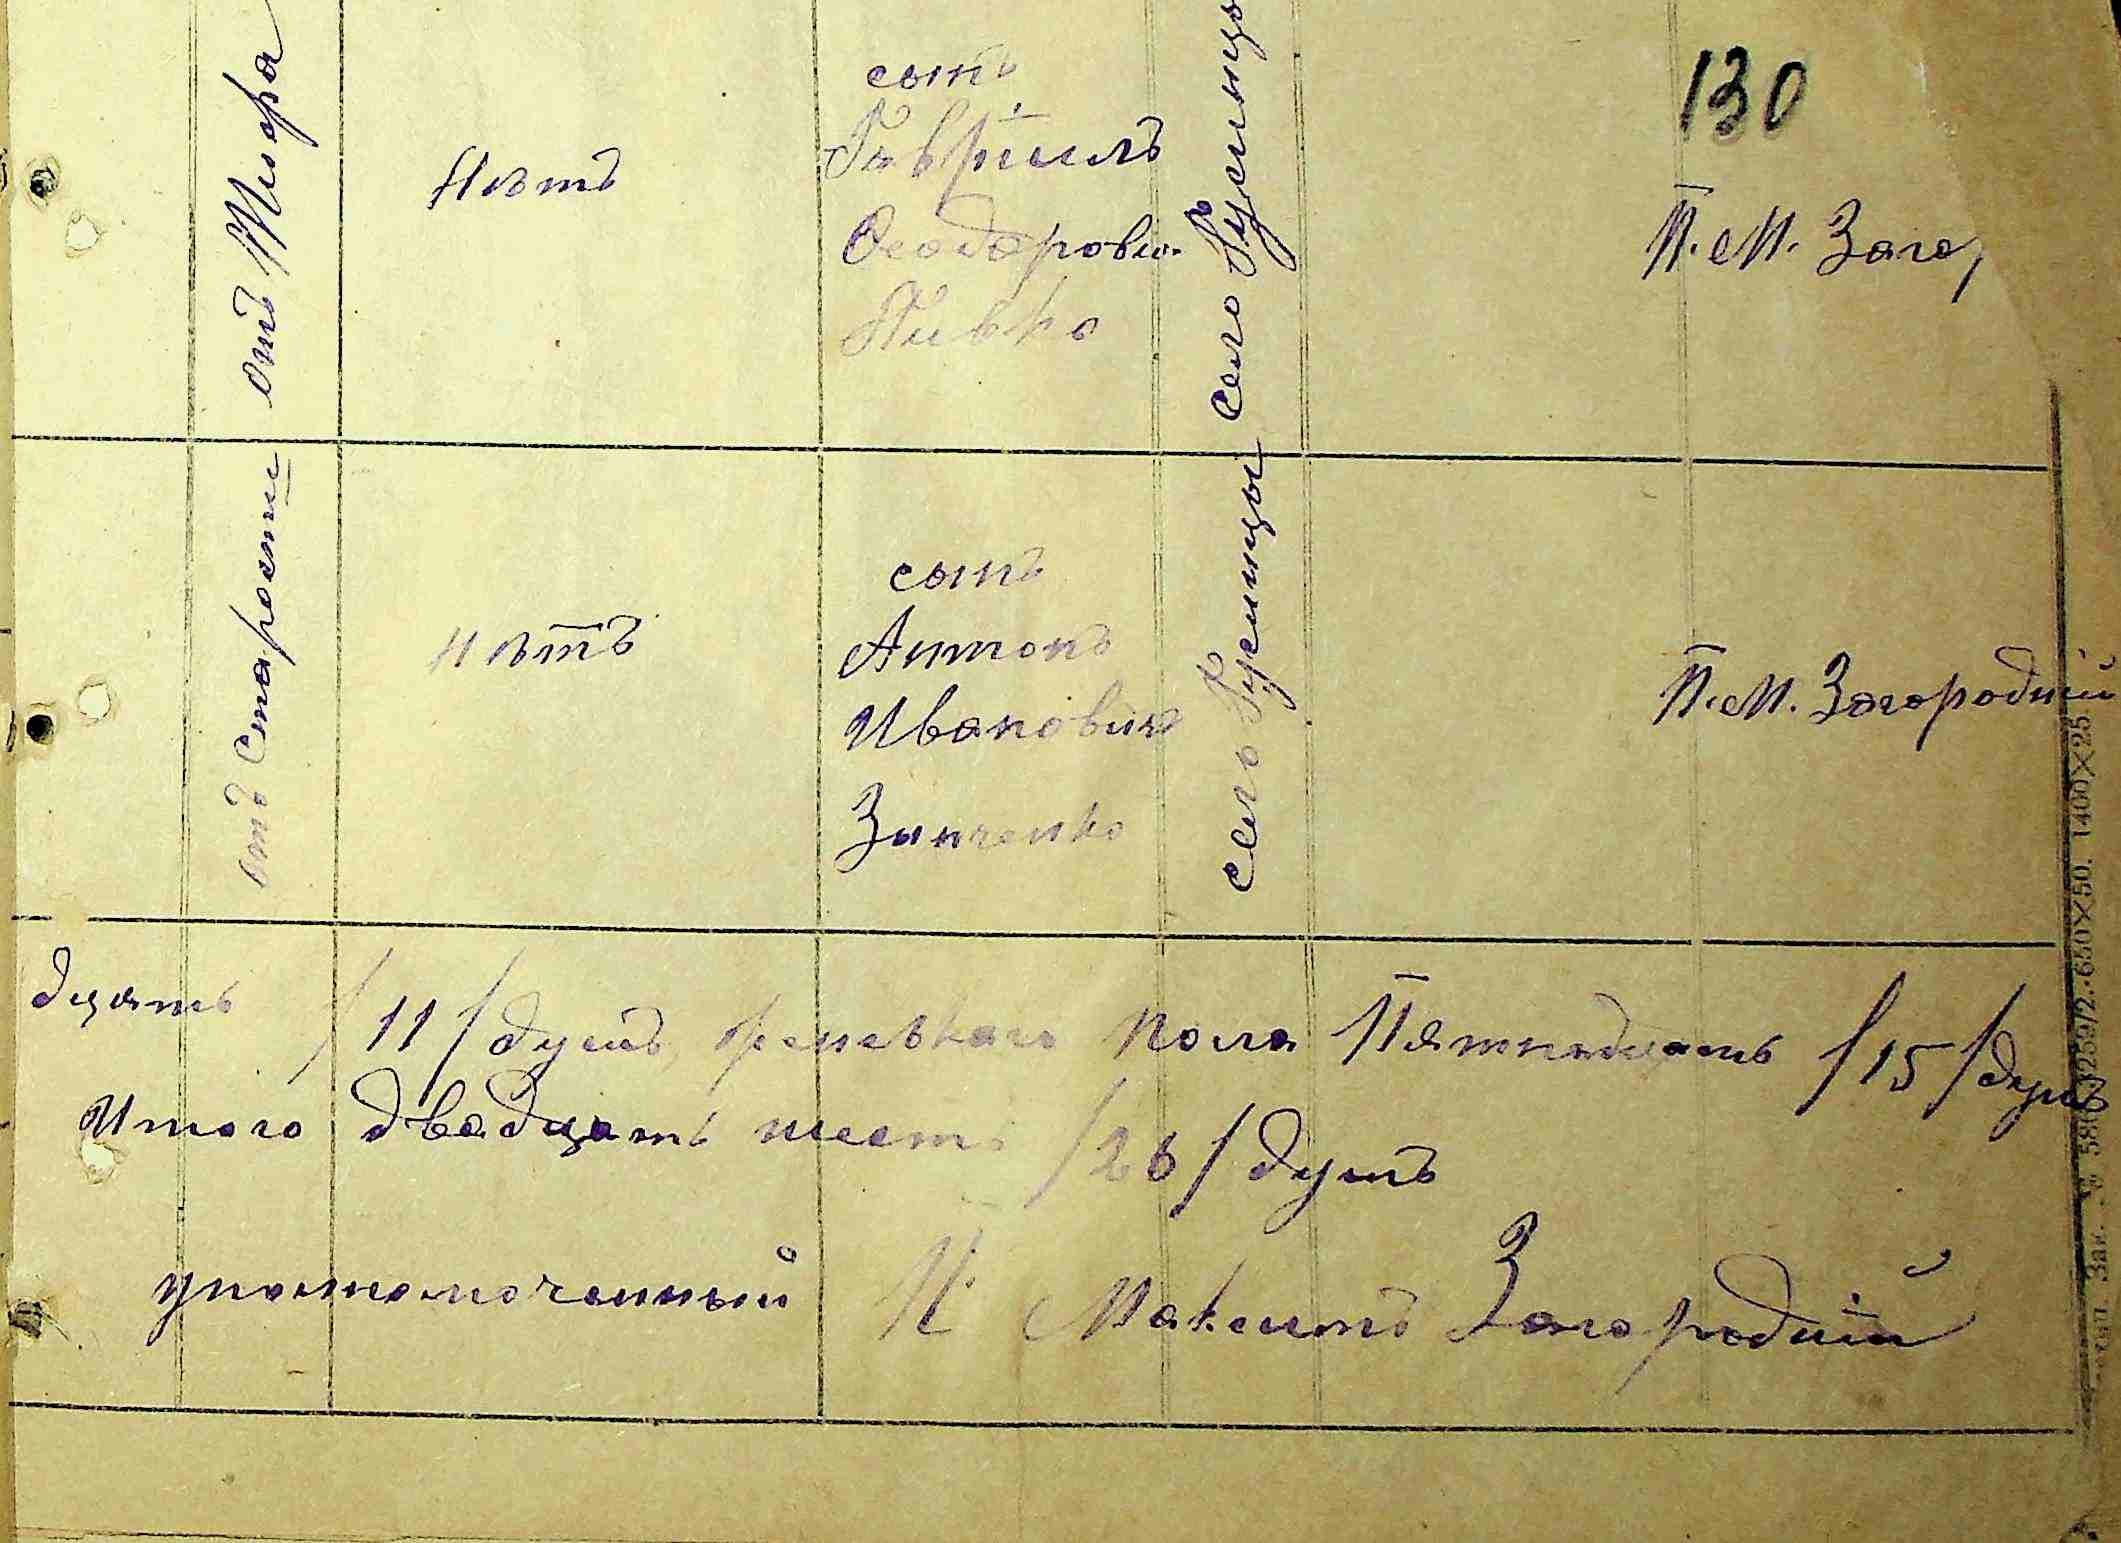 130
отъ Тифа
Нѣтъ
сынъ
Гавріилъ
Ѳеодоровичъ
Пивко
село Гусинцы
П. М. Заго
отъ старости
нѣтъ
сынъ
Антонъ
Ивановичъ
Зинченко
село Гусинцы
П. М. Загородній
дцать /11/ душъ, женскаго пола Пятнадцать /15/ душъ
Итого двадцать шесть /26/ душъ
уполномоченный П. Максимъ Загородній
Зак. № 5806 3259/2. 650×50. 1400×25